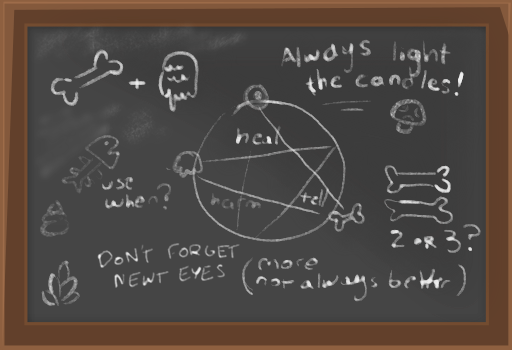 Always light
the candles!
+
heal
use
when?
harm
tell
2 or 3?
DON'T FORGET
NEWT EYES
(more
not always better)